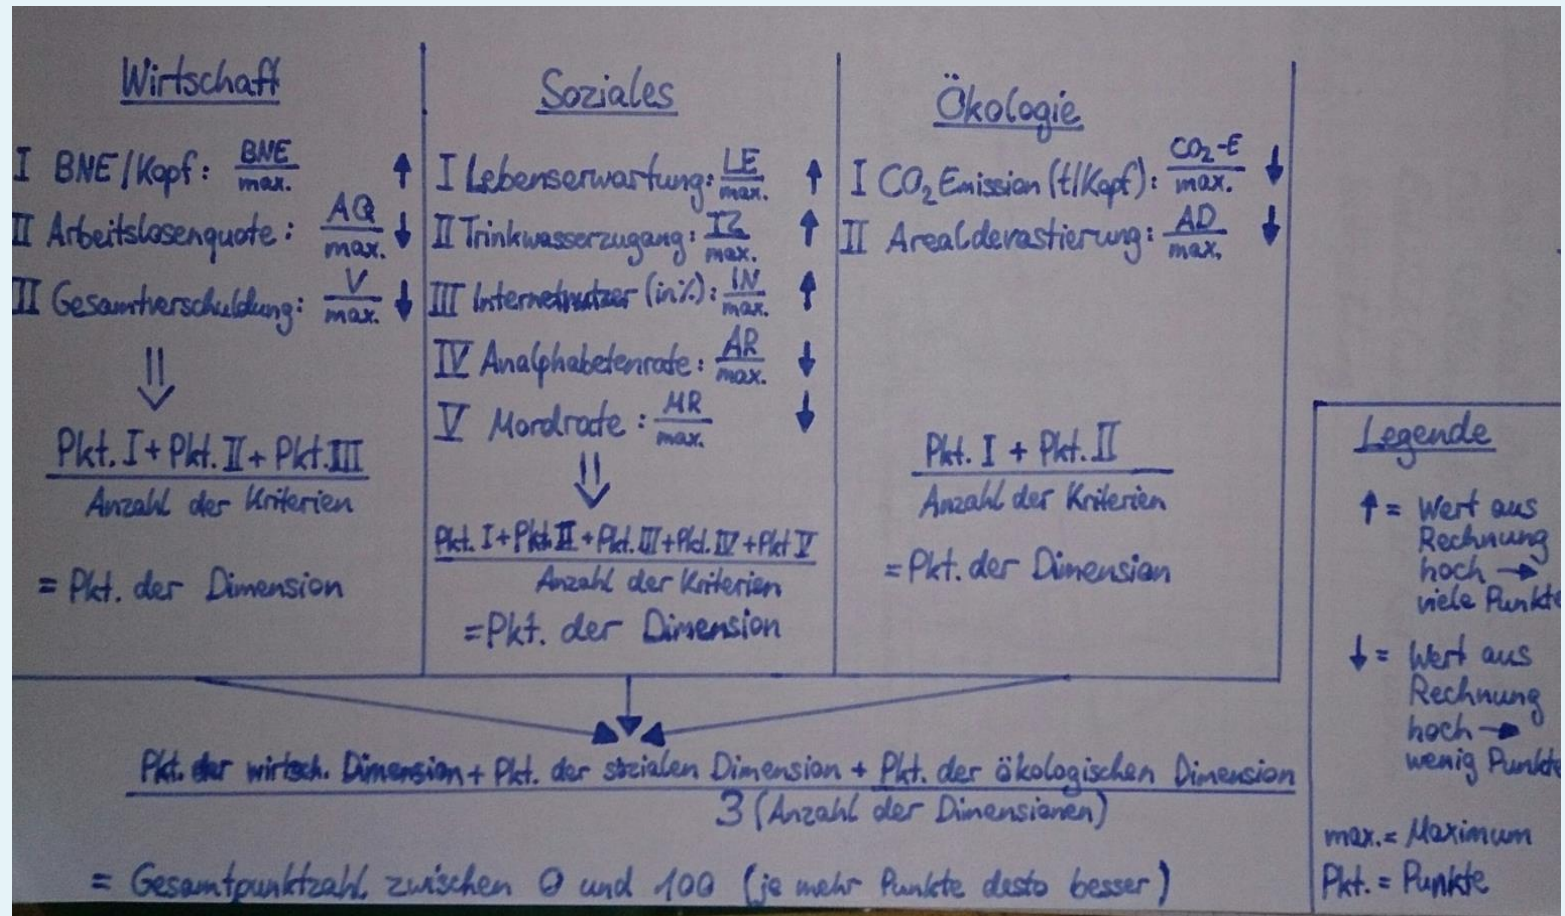 Wirtschaft
I BNE/Kopf: BNE/max. ↑
II Arbeitslosenquote: AQ/max. ↓
II Gesamtverschuldung: V/max. ↓
⇓
Pkt. I + Pkt. II + Pkt. III
Anzahl der Kriterien
= Pkt. der Dimension
Soziales
I Lebenserwartung: LE/max. ↑
II Trinkwasserzugang: TZ/max. ↑
III Internetnutzer (in%): IN/max. ↑
IV Analphabetenrate: AR/max. ↓
V Mordrate: MR/max. ↓
⇓
Pkt. I + Pkt. II + Pkt. III + Pkt. IV + Pkt V
Anzahl der Kriterien
= Pkt. der Dimension
Ökologie
I CO₂ Emission (t/Kopf): CO₂-E/max. ↓
II Arealdevastierung: AD/max. ↓
Pkt. I + Pkt. II
Anzahl der Kriterien
= Pkt. der Dimension
Pkt. der wirtsch. Dimension + Pkt. der sozialen Dimension + Pkt. der ökologischen Dimension
3 (Anzahl der Dimensionen)
= Gesamtpunktzahl zwischen 0 und 100 (je mehr Punkte desto besser)
Legende
↑ = Wert aus
Rechnung
hoch →
viele Punkte
↓ = Wert aus
Rechnung
hoch →
wenig Punkte
max. = Maximum
Pkt. = Punkte